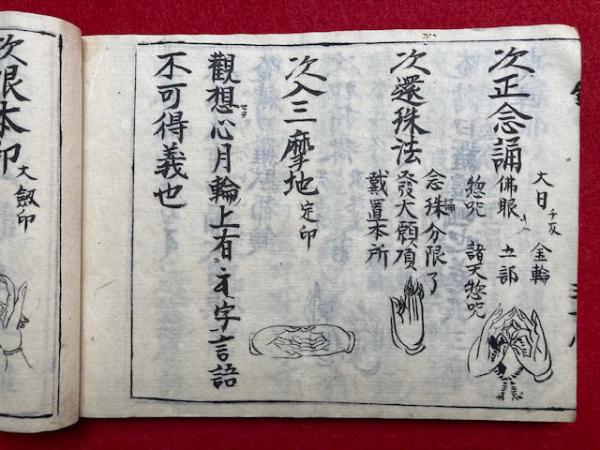 次正念誦
大日 金輪
佛眼 五部
惣咒 諸天惣咒
次還珠法
念珠分限了
發大願頂
戴置本所
次入三摩地 定印
觀想心月輪上有字言語
不可得義也
次根本印 大劔印